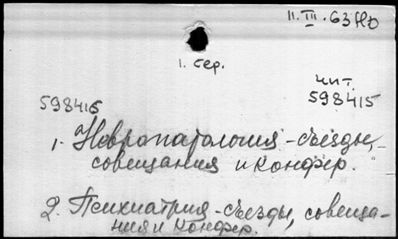 11.III.63 НД
1. сер.
чит.
598416 598415
1. Невропатология - съезды,
совещания и конфер.
2. Психиатрия - съезды, совеща-
ния и конфер.